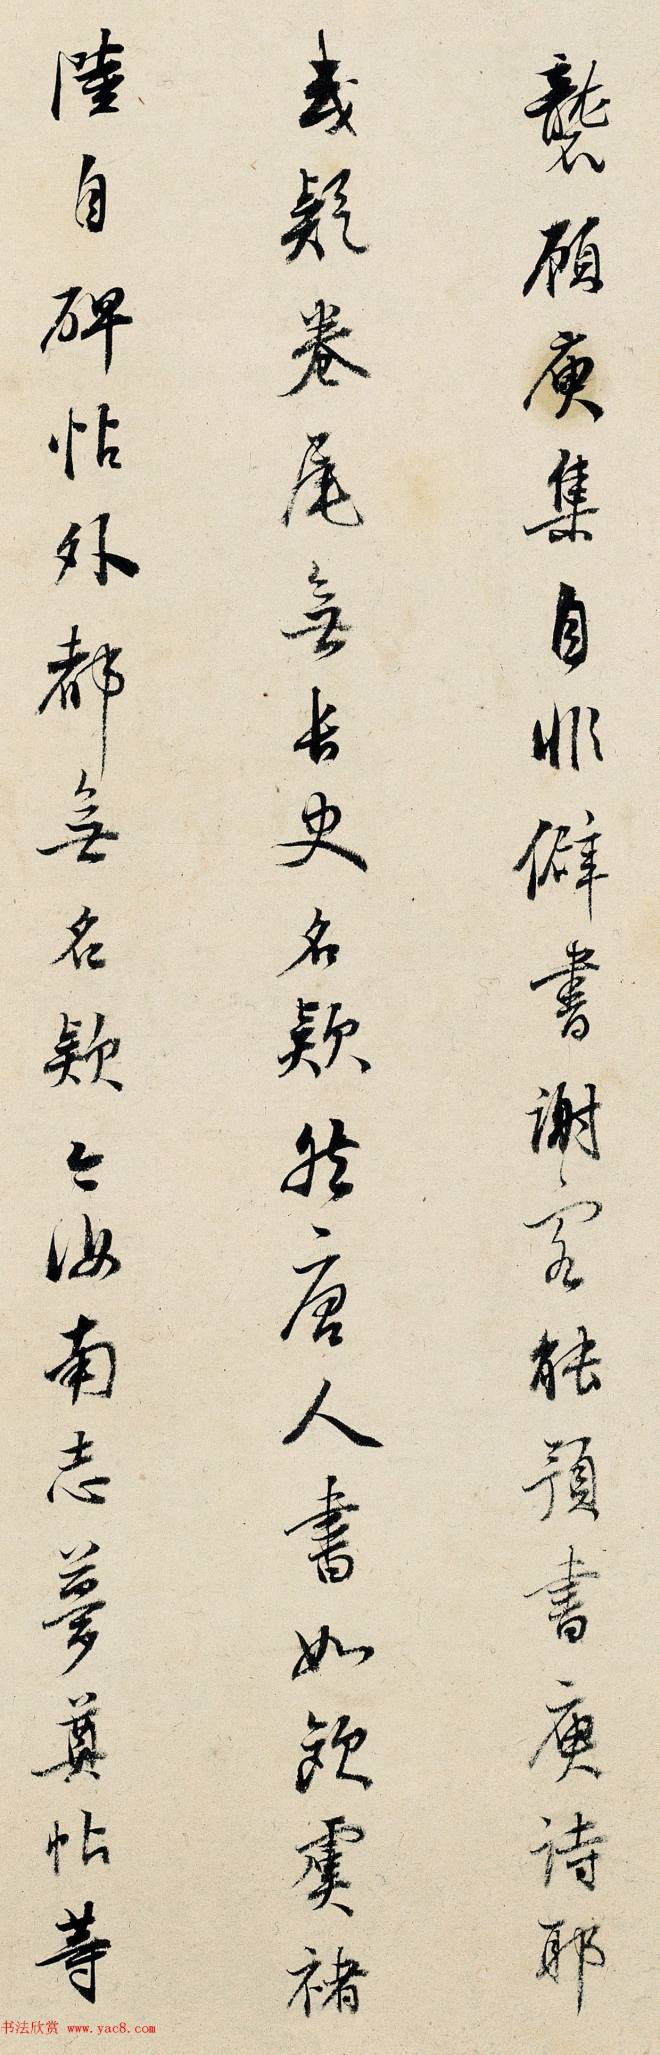 龔顧庾集自非僻書謝客能預書庾詩耶
或疑卷尾無長史名款然唐人書如歐虞褚
陸自碑帖外都無名款今汝南志夢奠帖等
书法欣赏 www.yac8.com